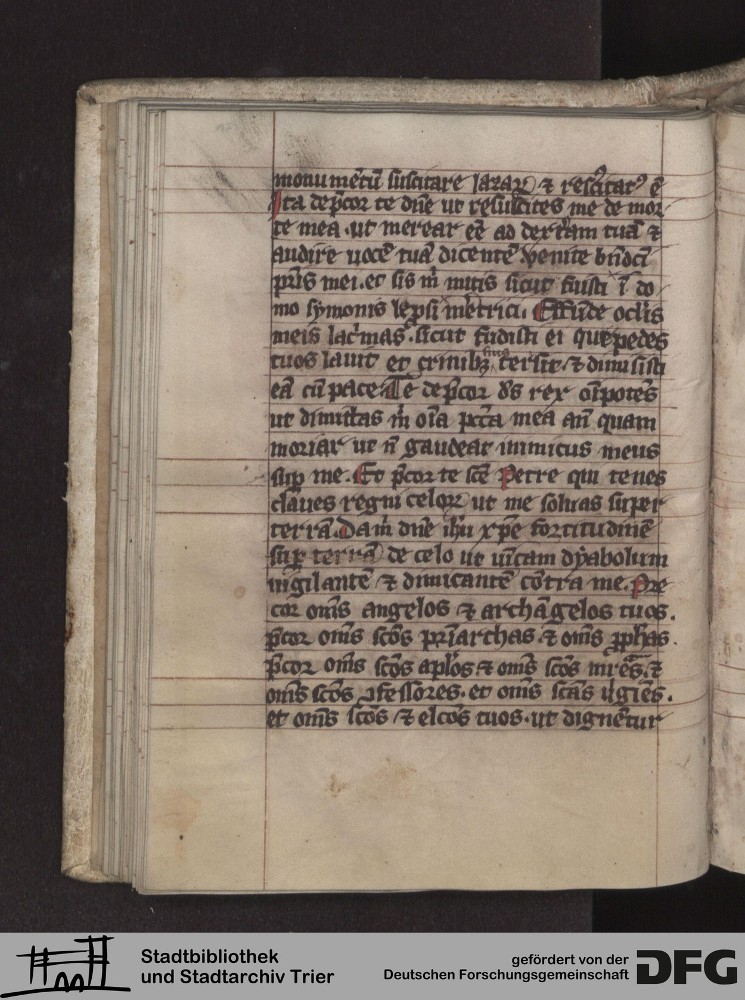 monumētū suscitare lazarū ⁊ resciᷓtatꝰ ē
Ita dep̄cor te dn̄e ut resuscites me de mor
te mea . ut merear eē ad dexterām tuā ⁊
audire uocē tuā dicentē venite bn̄dc̄i
pr̄is mei . et sis m̄ mitis sicut fuisti ī do
mo symonis lep̄si m̄etrici . Effūde oclīs
meis lac̄mas . sicut fudisti ei que pedes
tuos lauit et crinibꝫ suis tersit . ⁊ dimisisti
eā cū pace . Te dep̄cor ds̄ rex oīpotēs
ut dimittas m̄ oīa pcc̄ta mea an̄ quam
moriar ut n̄ gaudeat inimicus meus
sup̄ me . Et p̄cor te sc̄e Petre qui tenes
claues regni celoꝝ ut me soluas super
terrā . Da m̄ dn̄e ih̄u xp̄e fortitudinē
sup̄ terrā de celo ut uīcam dyabolum
uigilantē ⁊ dimicantē cōtra me . Pre
cor om̄s angelos ⁊ archāgelos tuos .
p̄cor om̄s sc̄os pr̄iarchas . ⁊ om̄s ꝓph̄as .
p̄cor om̄s sc̄os apl̄os ⁊ om̄s sc̄os mr̄es . ⁊
om̄s sc̄os ꝯfessores . et om̄s sc̄as ūgīes .
et om̄s sc̄os ⁊ elc̄os tuos . ut dignētur
Stadtbibliothek
und Stadtarchiv Trier
gefördert von der
Deutschen Forschungsgemeinschaft
DFG